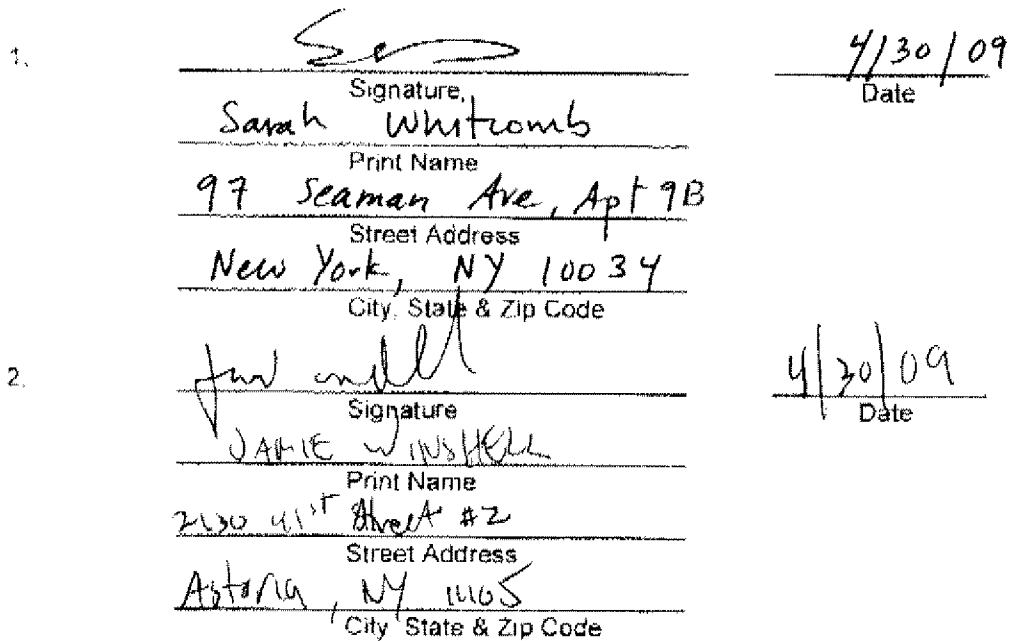 1. 4/30/09
Signature Date
Sarah Whitcomb
Print Name
97 Seaman Ave, Apt 9B
Street Address
New York, NY 10034
City, State & Zip Code
2. 4/30/09
Signature Date
JAMIE WINSHELL
Print Name
41st Street #2
Street Address
Astoria, NY 11105
City State & Zip Code